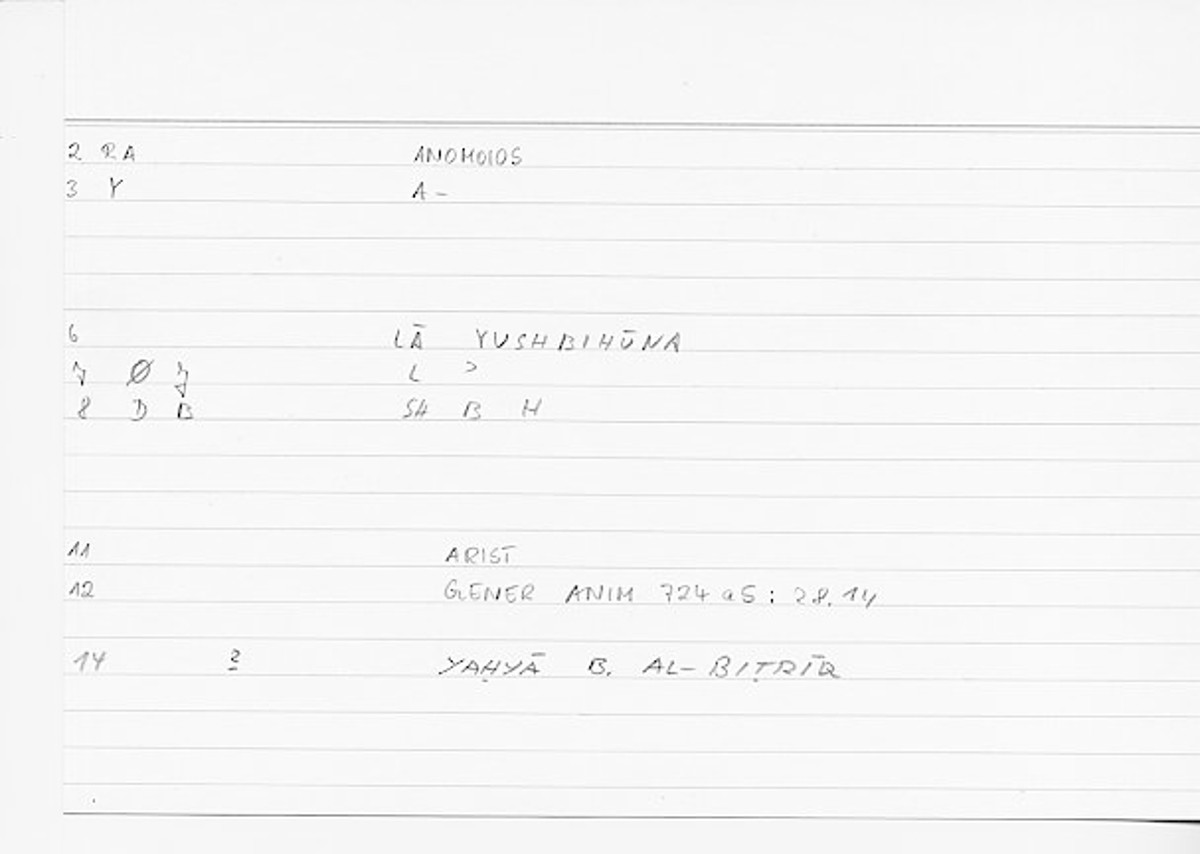 2 RA ANOMOIOS
3 Y A-
6 LĀ YUSHBIHŪNA
7 Ø J L ʾ
8 D B SH B H
11 ARIST
12 GENER ANIM 724 a5 : 28.14
14 2 YAḤYĀ B. AL-BIṬRĪQ